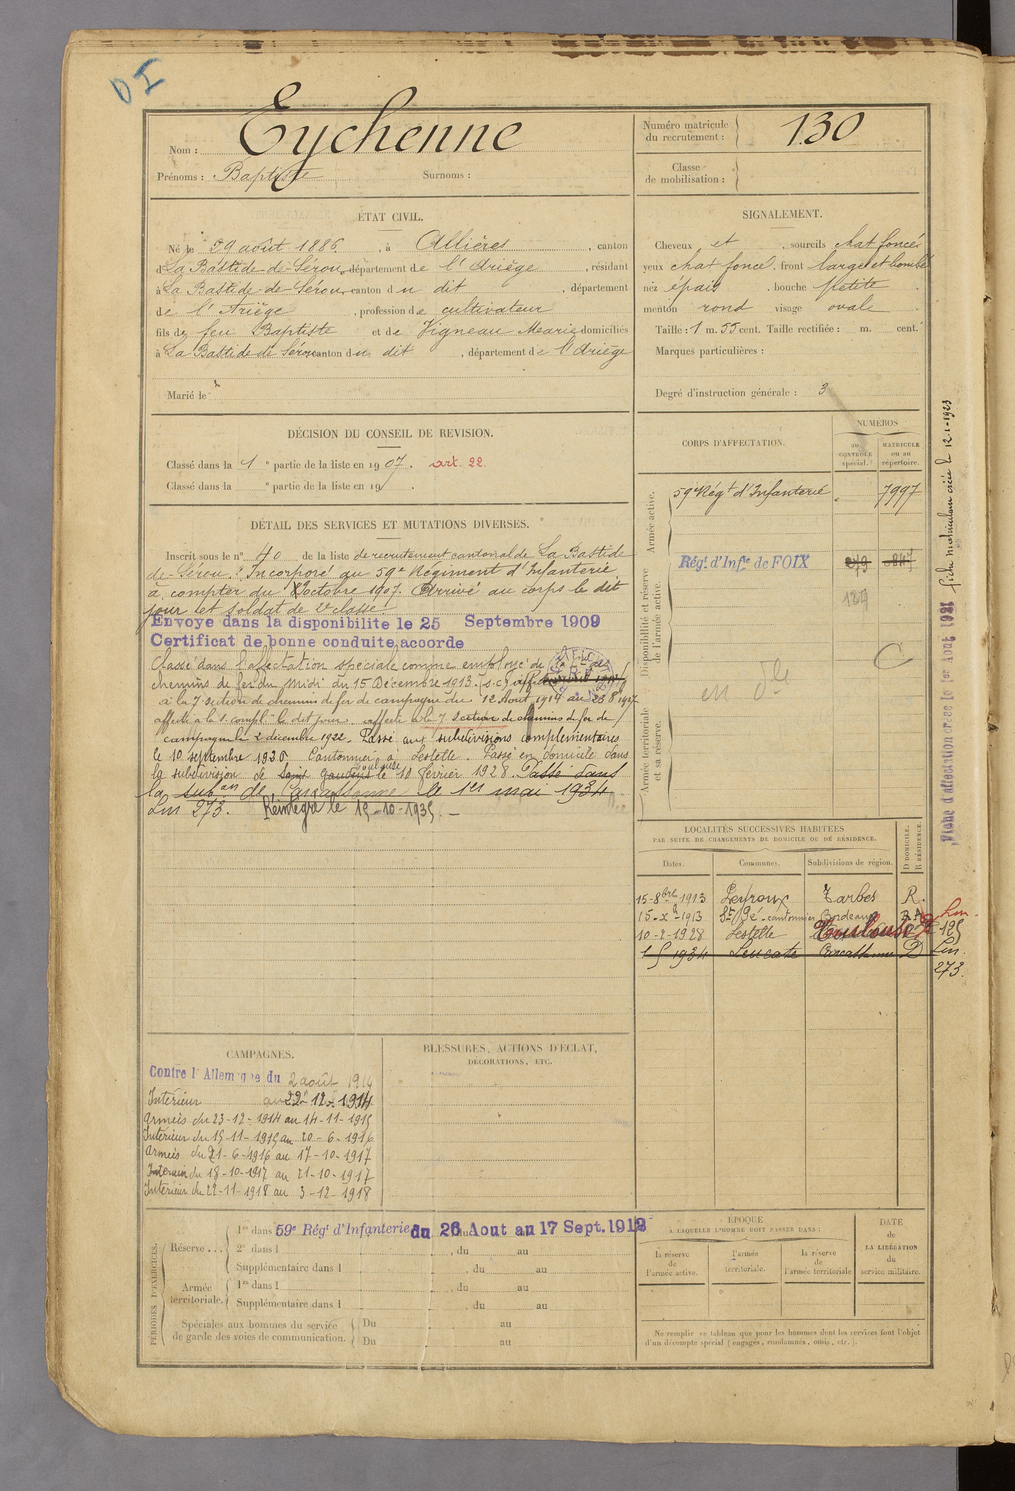 DI
Nom : Eychenne
Prénoms : Baptiste Surnoms :
Numéro matricule du recrutement : 130
Classe de mobilisation :
ÉTAT CIVIL.
Né le 29 août 1886, à Allières, canton
d La Bastide-de-Sérou, département de l'Ariège, résidant
à La Bastide-de-Sérou, canton du dit, département
de l'Ariège, profession de cultivateur
fils de feu Baptiste et de Vigneau Marie domiciliés
à La Bastide de Sérou canton du dit, département de l'Ariège
Marié le
SIGNALEMENT.
Cheveux et, sourcils chat foncés
yeux chat foncé, front large et bombé
nez épais, bouche petite
menton rond visage ovale
Taille : 1 m. 55 cent. Taille rectifiée : m. cent.
Marques particulières :
Degré d'instruction générale : 3
DÉCISION DU CONSEIL DE REVISION.
Classé dans la 1e partie de la liste en 1907. art. 22.
Classé dans la e partie de la liste en 19 .
DÉTAIL DES SERVICES ET MUTATIONS DIVERSES.
Inscrit sous le n° 40 de la liste de recrutement cantonal de La Bastide
de-Sérou. Incorporé au 59e Régiment d'Infanterie
à compter du 8 octobre 1907. Arrivé au corps le dit
jour et soldat de 2e classe.
Envoyé dans la disponibilité le 25 Septembre 1909
Certificat de bonne conduite accordé
Classé dans l'affectation spéciale comme employé de la Cie des
chemins de fer du midi du 15 Décembre 1913. (s.c.)
à la 7 section de chemins de fer de campagne du 12 Août 1914 au 23 8 1917
affecté à la s. compl. le dit jour. affecté à la 7 section de chemins de fer de
campagne le 2 décembre 1922. Passé aux subdivisions complémentaires
le 10 septembre 1926. Cantonnier à Lestelle. Passé en domicile dans
la subdivision de Saint Gaudens Toulouse le 10 février 1928. Passé dans
la subon de Carcassonne le 1er mai 1934.
Lm 273. Réintégré le 15-10-1935. —
CORPS D'AFFECTATION.
NUMÉROS
au contrôle spécial.
matricule ou au répertoire.
Armée active.
59e Régt d'Infanterie 7997
Disponibilité et réserve de l'armée active.
Régt d'Infie de FOIX
Armée territoriale et sa réserve.
en dle
C
fiche matriculaire créée le 12-1-1923
Fiche d'affectation créée le 1er Août 1921
LOCALITÉS SUCCESSIVES HABITÉES
PAR SUITE DE CHANGEMENTS DE DOMICILE OU DE RÉSIDENCE.
Dates. Communes. Subdivisions de région. D DOMICILE. R RÉSIDENCE.
15-8bre 1913 Peyroux Tarbes R.
15-X-1913 St Pé - cantonnier Bordeaux
10-2-1928 Lestelle Toulouse Lm. 195
1 5 1934 Leucate Carcassonne D Lm. 273.
CAMPAGNES.
Contre l'Allemagne du 2 août 1914
Intérieur au 22-12-1914
Armées du 23-12-1914 au 14-11-1915
Intérieur du 15-11-1915 au 20-6-1916
Armées du 21-6-1916 au 17-10-1917
Intérieur du 18-10-1917 au 21-10-1917
Intérieur du 22-11-1918 au 3-12-1918
BLESSURES, ACTIONS D'ÉCLAT,
DÉCORATIONS, ETC.
PÉRIODES D'EXERCICES.
Réserve ... 1re dans 59e Régt d'Infanterie du 26 Aout au 17 Sept. 1912
2e dans l , du au
Supplémentaire dans l , du au
Armée territoriale. 1re dans l , du au
Supplémentaire dans l , du au
Spéciales aux hommes du service de garde des voies de communication. Du au
Du au
ÉPOQUE
À LAQUELLE L'HOMME DOIT PASSER DANS :
la réserve de l'armée active.
l'armée territoriale.
la réserve de l'armée territoriale
DATE de LA LIBÉRATION du service militaire.
Ne remplir ce tableau que pour les hommes dont les services font l'objet
d'un décompte spécial (engagés, condamnés, omis, etc.).